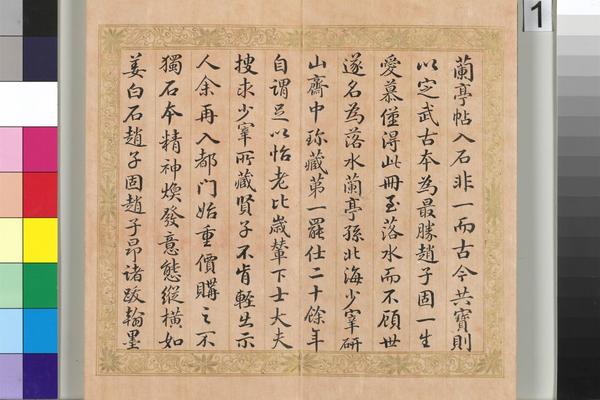 蘭亭帖入石非一而古今共寶則
以定武古本為最勝趙子固一生
愛慕僅得此冊至落水而不顧世
遂名為落水蘭亭孫北海少宰研
山齋中珎藏第一罷仕二十餘年
自謂足以怡老比歲輦下士大夫
搜求少宰所藏賢子不肯輕出示
人余再入都門始重價購之不
獨石本精神煥發意態縱橫如
姜白石趙子固趙子昂諸跋翰墨
1